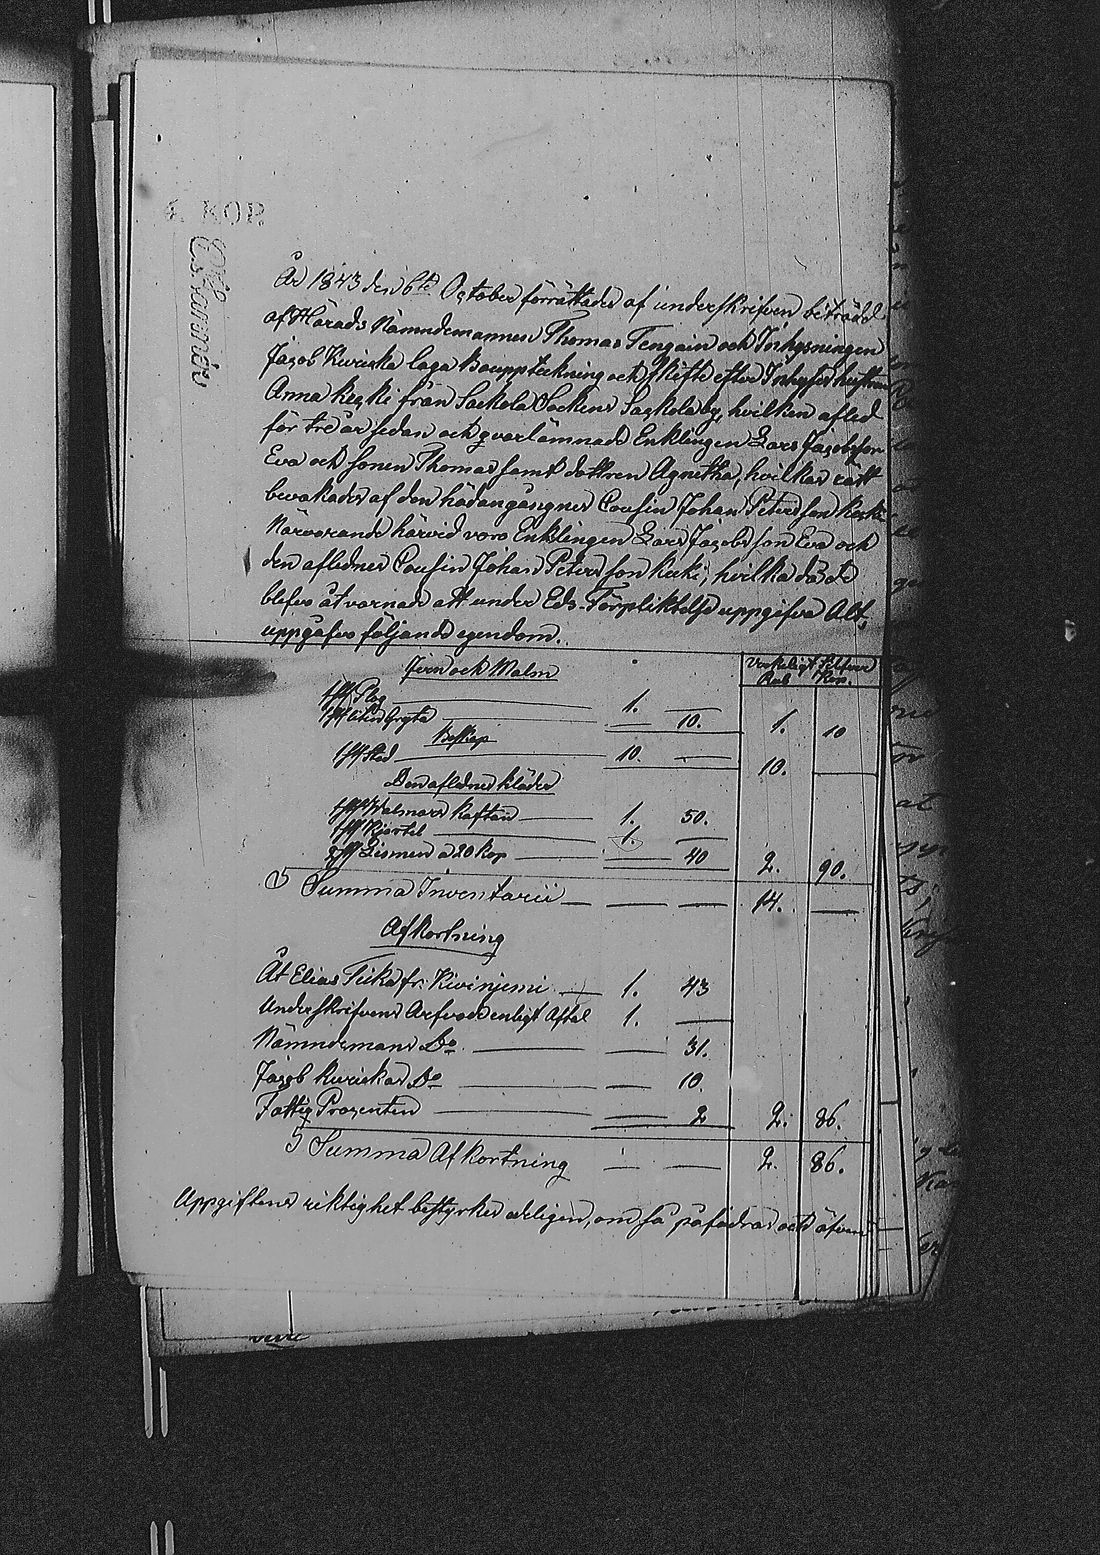 4. KOP.
År 1843 den 6te October förrättades af underskrifven biträdd
af Härads Nämndemannen Thomas Tengain och Inhysningen
Jacob Kiriska laga Bouppteckning och skifte efter Inhyses hustrun
Anna Keski från Sackola Sockens Sackola by, hvilken afled
för tre år sedan och qvarlämnade Enklingen Lars Jacobsson
Eva och sonen Thomas samt dottren Agnetha, hvilkas rätt
bevakades af den hädangångnes Cousin Johan Petersson Keski
Närvarande härvid voro Enklingen Lars Jacobsson Eva och
den aflednes Cousin Johan Petersson Keski, hvilka då de
blefvo åtvarnade att under Eds-Förpliktelse uppgifva Allt,
uppgåfvo följande egendom.
Verkeligt Silfver
Jern och Malm Rub Kop.
1 st Plog 1. —
1 st liten Gryta — 10. 1. 10
Boskap
1 st Sto 10. — 10. —
Den aflednes kläder
1 st Walmars Kaftan — 1. 50.
1 st Kjortel — 1. —
2 st Lismen a 20 Kop — 40 2. 90.
S Summa Inventarii — — — 14. —
Afkortning
Åt Elias Tiika fr. Kivinjemi — 1. 43
Underskrifvens Arfvode enligt Aftal 1. —
Nämndemans Do — — 31.
Jacob Kiriskas Do — — 10.
Fattig Procenten — — 2 2. 86.
S Summa Afkortning — — 2. 86.
Uppgiftens riktighet bestyrkes edeligen, om så påfodras och äfven